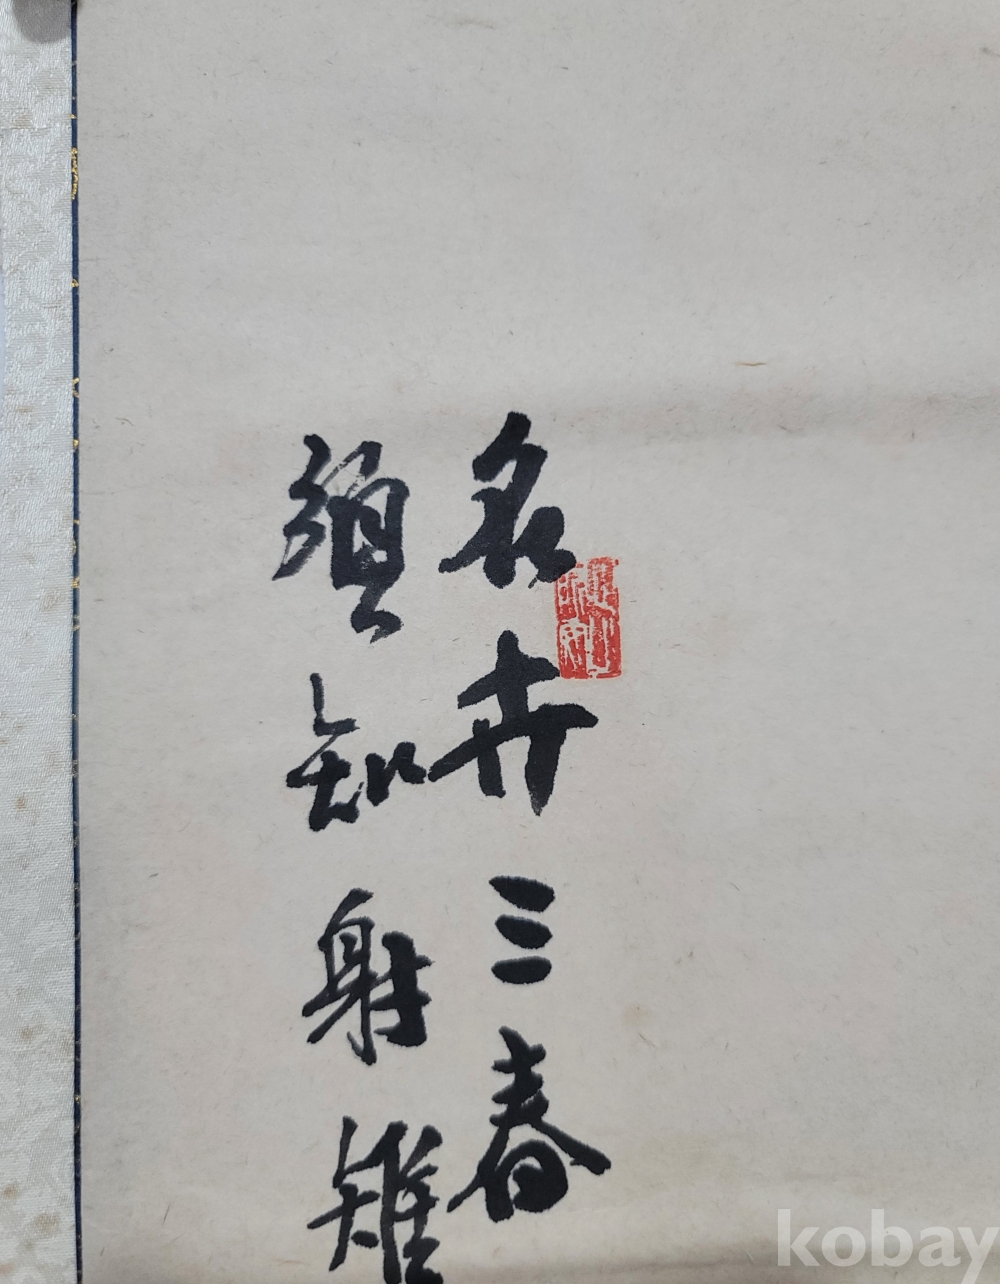 名卉三春
須知射雉
kobay